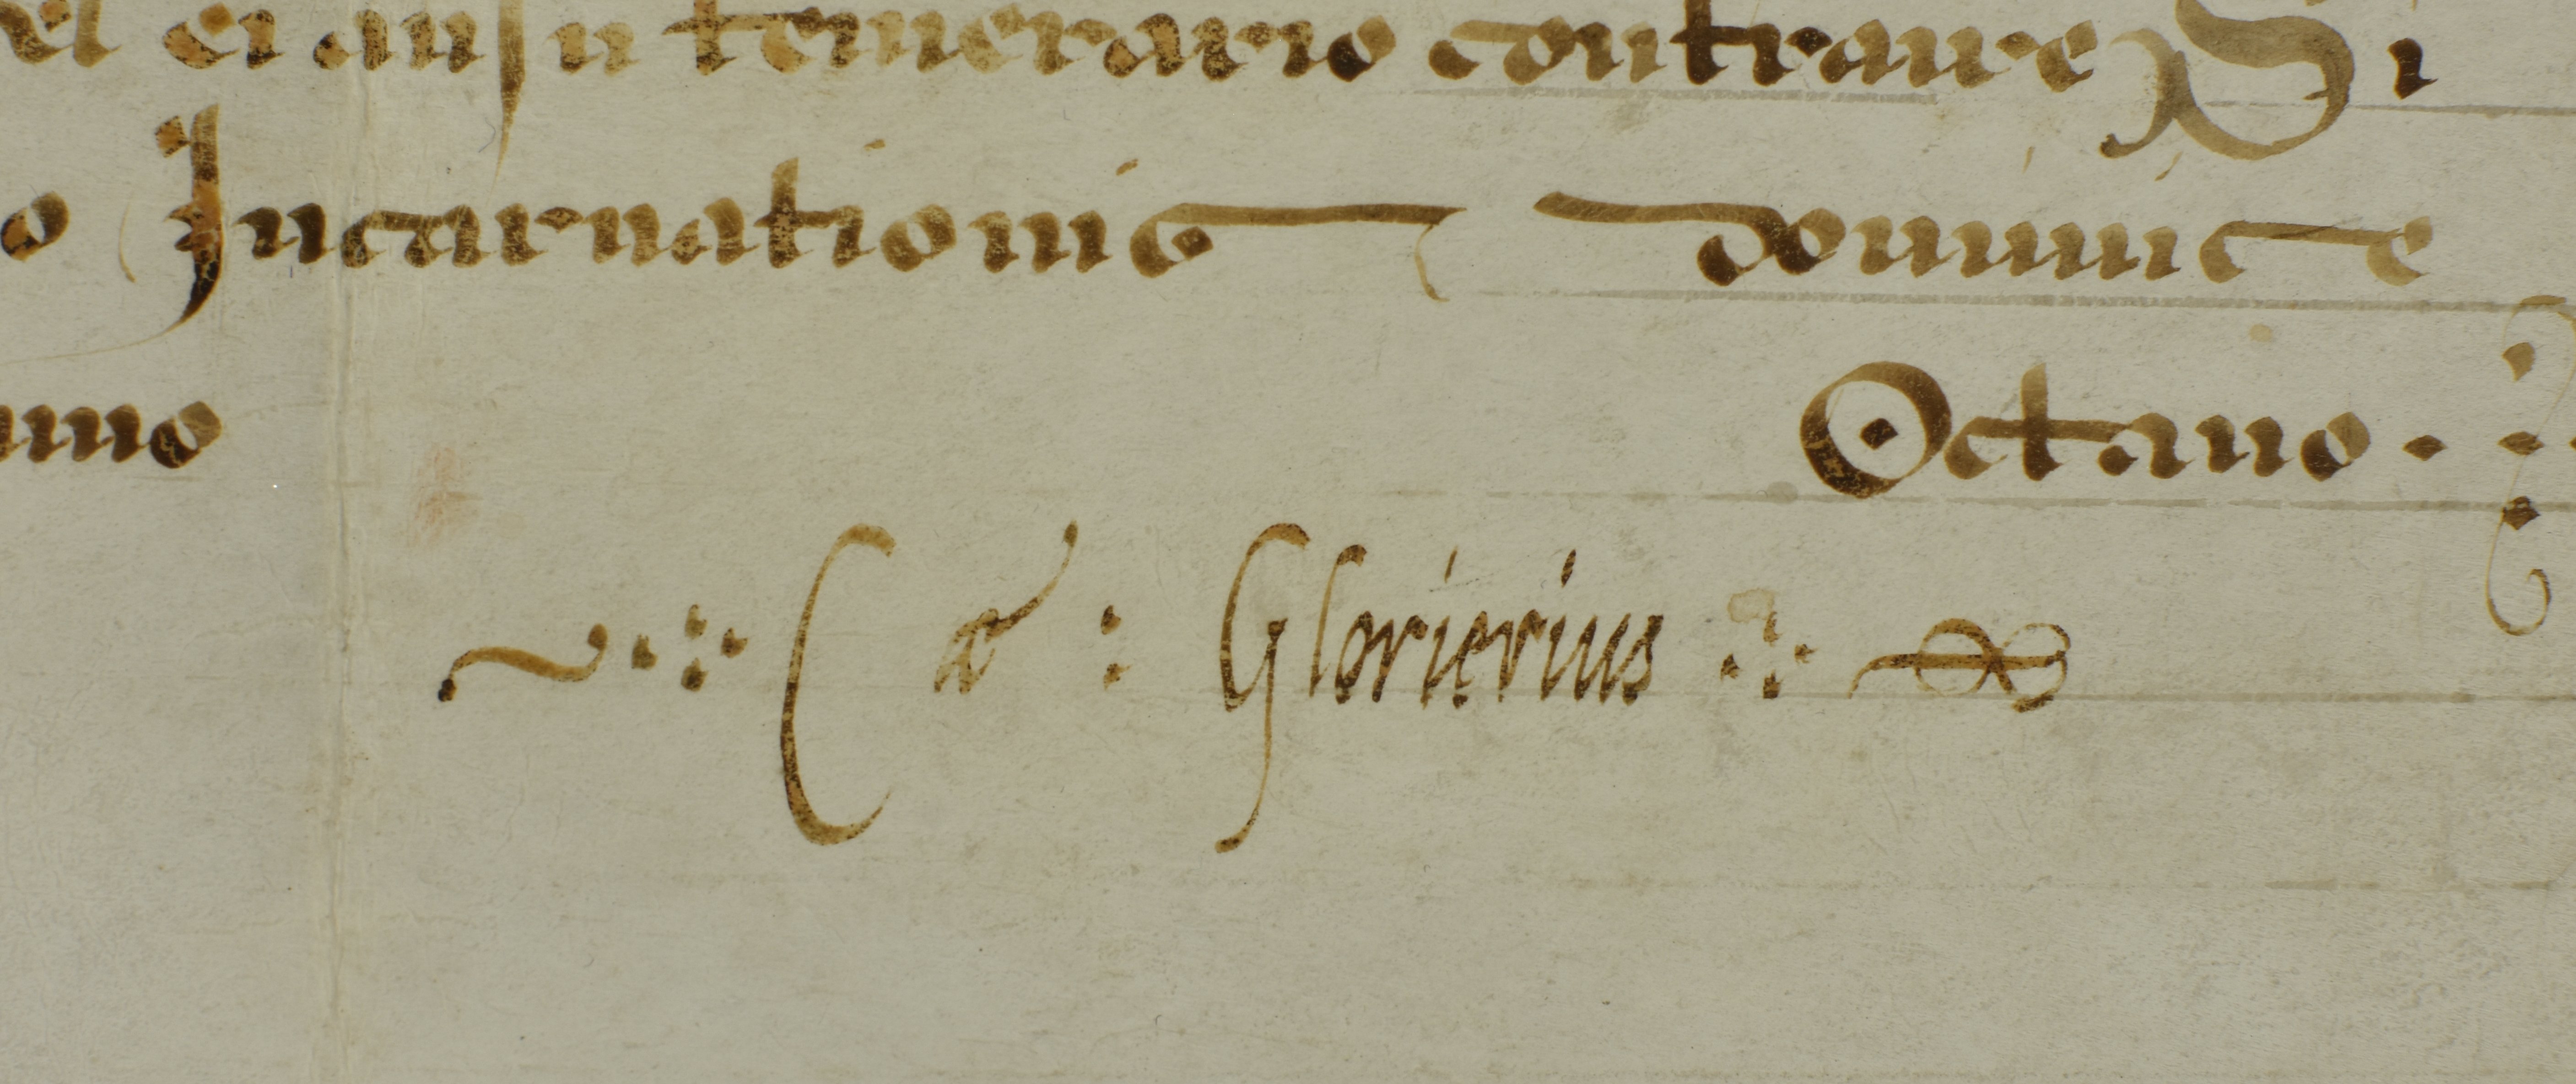 el ei ausu temerario contraire Si
o Incarnationis dominice
nno Octauo .
Cæ : Glorierius